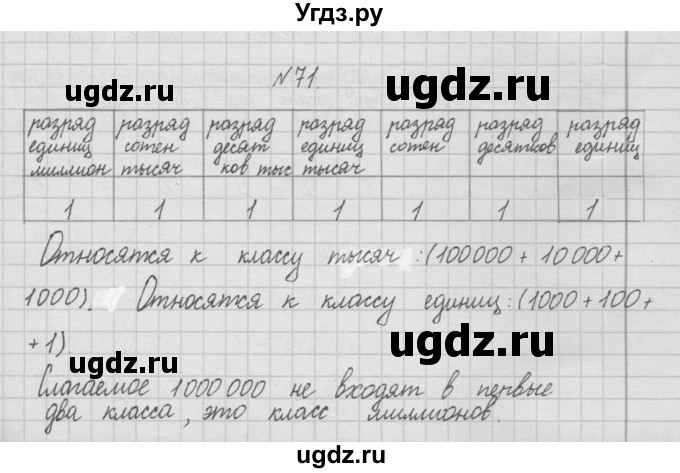 Угдз.ру
№71.
ugdz.ru ugdz.ru
разряд разряд разряд разряд разряд разряд разряд
единиц сотен десят единиц сотен десятков единиц
миллион тысяч ков тыс тысяч
1 1 1 1 1 1 1
Относятся к классу тысяч :(100000 + 10000+
1000). Относятся к классу единиц:(1000+100+
+1)
ugdz.ru ugdz.ru
Слагаемое 1000000 не входят в первые
два класса, это класс миллионов.
ugdz.ru